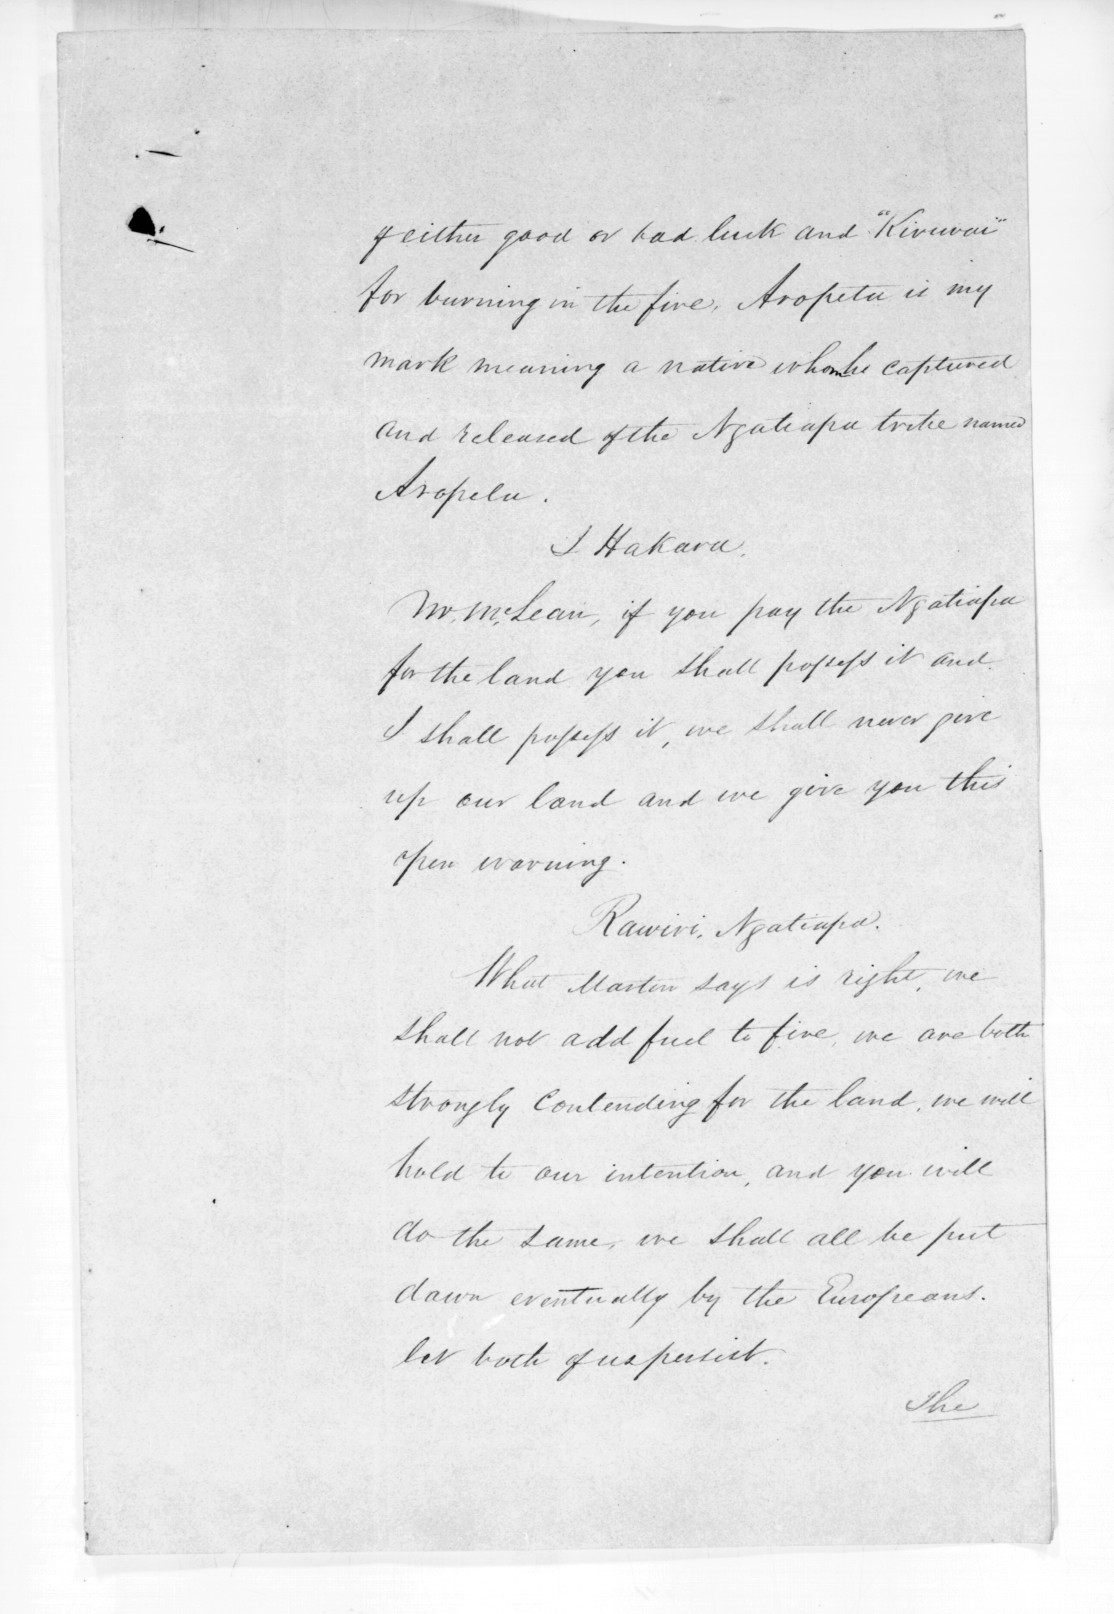 of either good or bad luck and "Kiruwai"
for burning in the fire, Aropeta is my
mark meaning a native whom he captured
and released of the Ngatiapa tribe named
Aropeta.
I Hakara.
Mr. McLean, if you pay the Ngatiapa
for the land you shall possess it and
I shall possess it, we shall never give
up our land and we give you this
open warning.
Rawiri, Ngatiapa.
What Marton says is right, we
shall not add fuel to fire, we are both
strongly contending for the land, we will
hold to our intention, and you will
do the same, we shall all be put
down eventually by the Europeans.
let both of us persist.
The